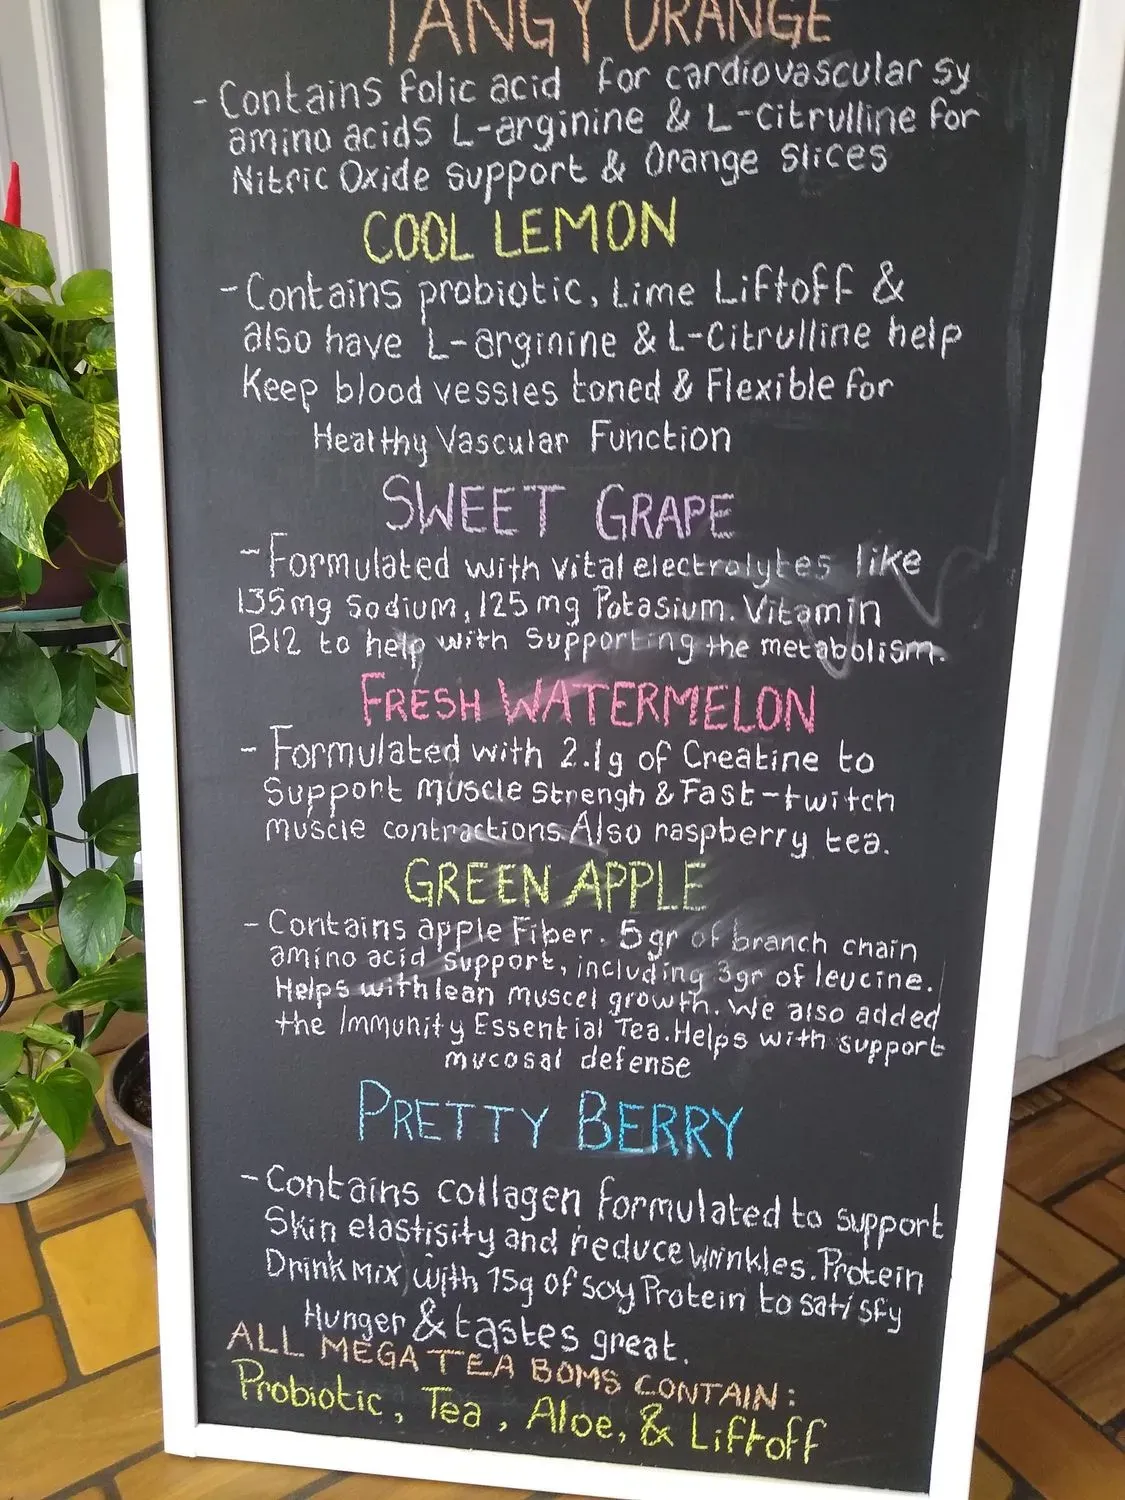 TANGY ORANGE
- Contains folic acid for cardiovascular sy
amino acids L-arginine & L-Citrulline for
Nitric Oxide support & Orange slices
COOL LEMON
- Contains probiotic, Lime Liftoff &
also have L-arginine & L-Citrulline help
Keep blood vessles toned & Flexible for
Healthy Vascular Function
SWEET GRAPE
- Formulated with vital electrolytes like
135mg Sodium, 125mg Potasium. Vitamin
B12 to help with supporting the metabolism.
FRESH WATERMELON
- Formulated with 2.1g of Creatine to
Support muscle strengh & Fast-twitch
muscle contractions. Also raspberry tea.
GREEN APPLE
- Contains apple Fiber. 5gr of branch chain
amino acid support, including 3gr of leucine.
Helps with lean muscel growth. We also added
the Immunity Essential Tea. Helps with support
mucosal defense
PRETTY BERRY
- Contains collagen formulated to support
Skin elastisity and reduce wrinkles. Protein
Drink Mix with 15g of soy Protein to satisfy
Hunger & tastes great.
ALL MEGA TEA BOMS CONTAIN:
Probiotic, Tea, Aloe, & Liftoff